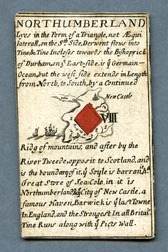 NORTHUMBERLAND
Lyes in the Form of a Triangle, not Æqui
laterall, on the Sth Side, Derwent flows into
Tine & Tine Incloses towards the Bishoprick
of Durham, on yᵉ East side, is yᵉ German
Ocean, but the west side extends in Length
from North, to South, by a Continued
New Castle
VIII
Ridg of mountains, and after by the
River Tweed, opposit to Scotland, and
is the bound of it, yᵉ Soyle is barren A
Great Store of Sea Cole, in it is
Northumberland City of New Castle, a
famous Haven, Barwick is yᵉ last Towne
In England, and the Strongest In all Britain
Tine Runs along with yᵉ Picts Wall